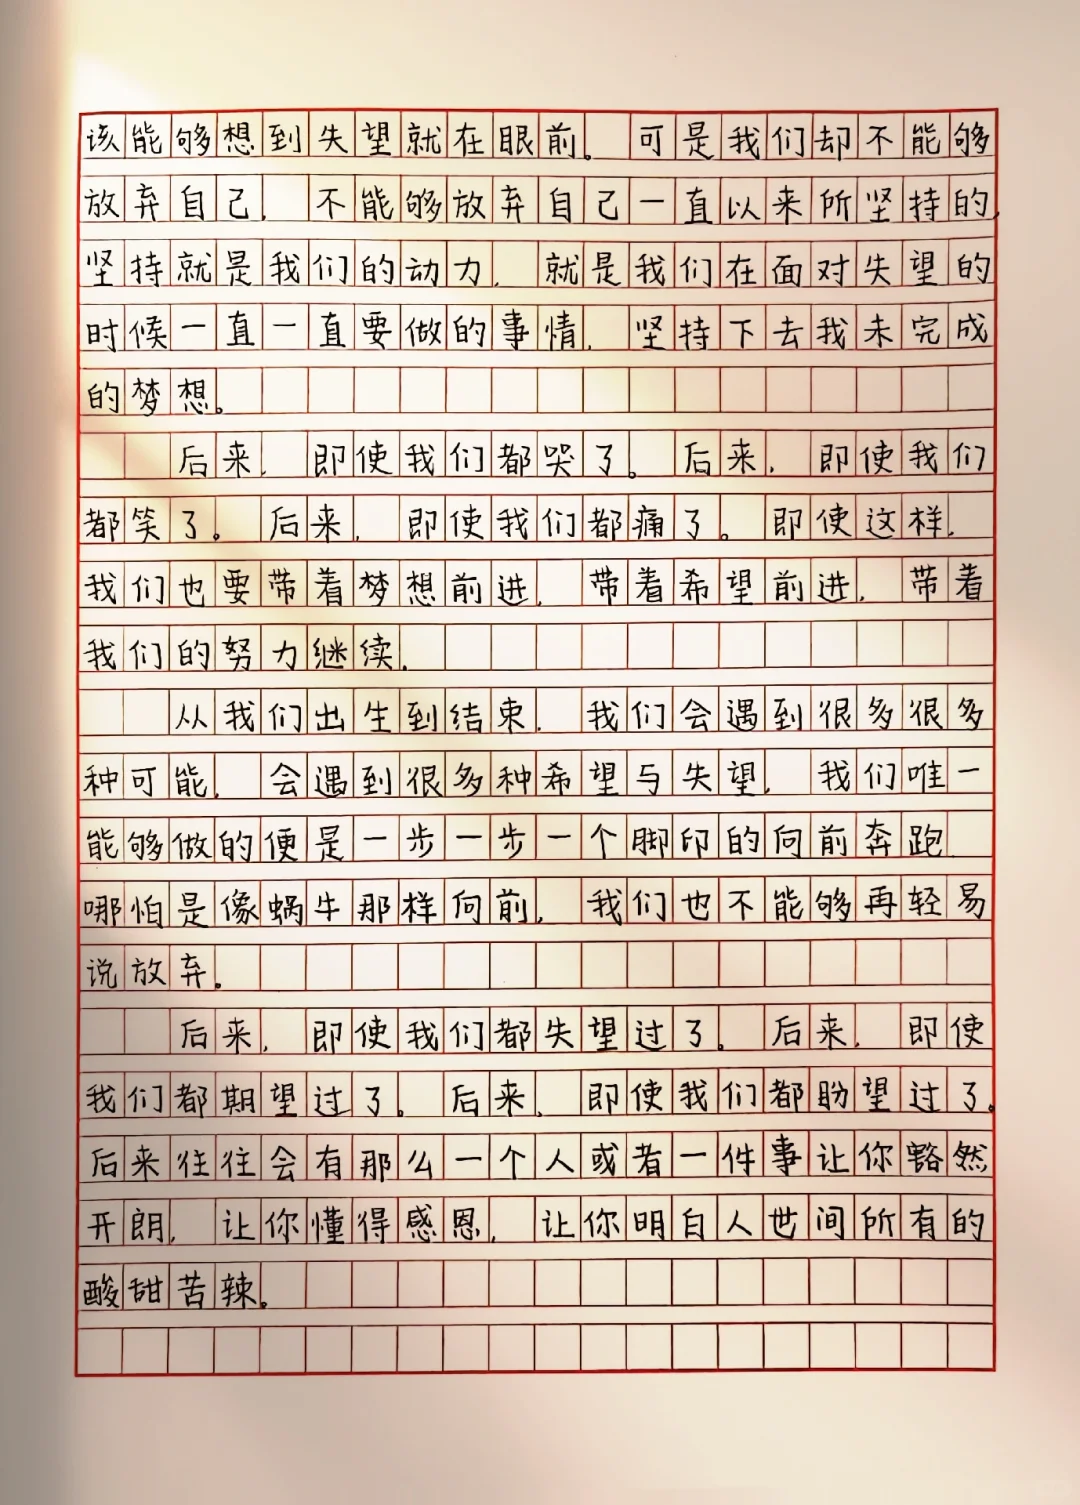 该能够想到失望就在眼前。可是我们却不能够
放弃自己,不能够放弃自己一直以来所坚持的,
坚持就是我们的动力,就是我们在面对失望的
时候一直一直要做的事情,坚持下去我未完成
的梦想。
后来,即使我们都哭了。后来,即使我们
都笑了。后来,即使我们都痛了。即使这样,
我们也要带着梦想前进,带着希望前进,带着
我们的努力继续,
从我们出生到结束,我们会遇到很多很多
种可能,会遇到很多种希望与失望,我们唯一
能够做的便是一步一步一个脚印的向前奔跑,
哪怕是像蜗牛那样向前,我们也不能够再轻易
说放弃。
后来,即使我们都失望过了。后来,即使
我们都期望过了。后来,即使我们都盼望过了。
后来往往会有那么一个人或者一件事让你豁然
开朗,让你懂得感恩,让你明白人世间所有的
酸甜苦辣。